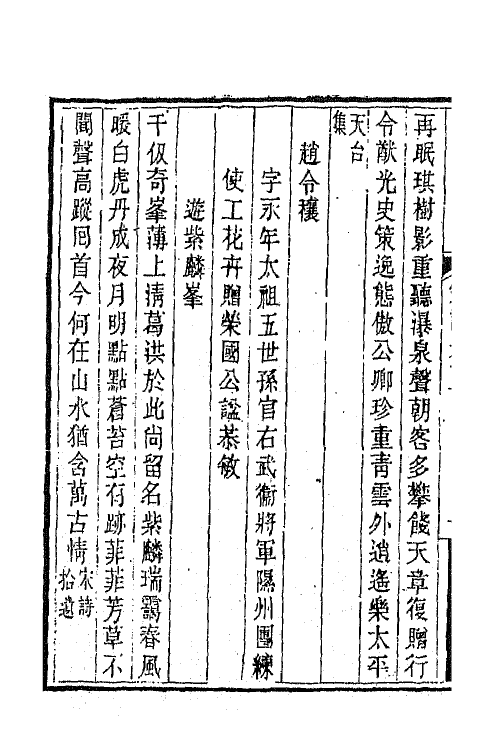 再眠琪樹影重聽瀑泉聲朝客多攀餞天章復贈行
令猷光史策逸態傲公卿珍重青雲外逍遙樂太平
天台
集
趙令穰
字永年太祖五世孫官右武衞將軍隰州團練
使工花卉贈榮國公諡恭敏
遊紫麟峯
千仭奇峯薄上淸葛洪於此尙留名紫麟瑞靄春風
暖白虎丹成夜月明點點蒼苔空有跡菲菲芳草不
聞聲高蹤囘首今何在山水猶含萬古情宋詩
拾遺